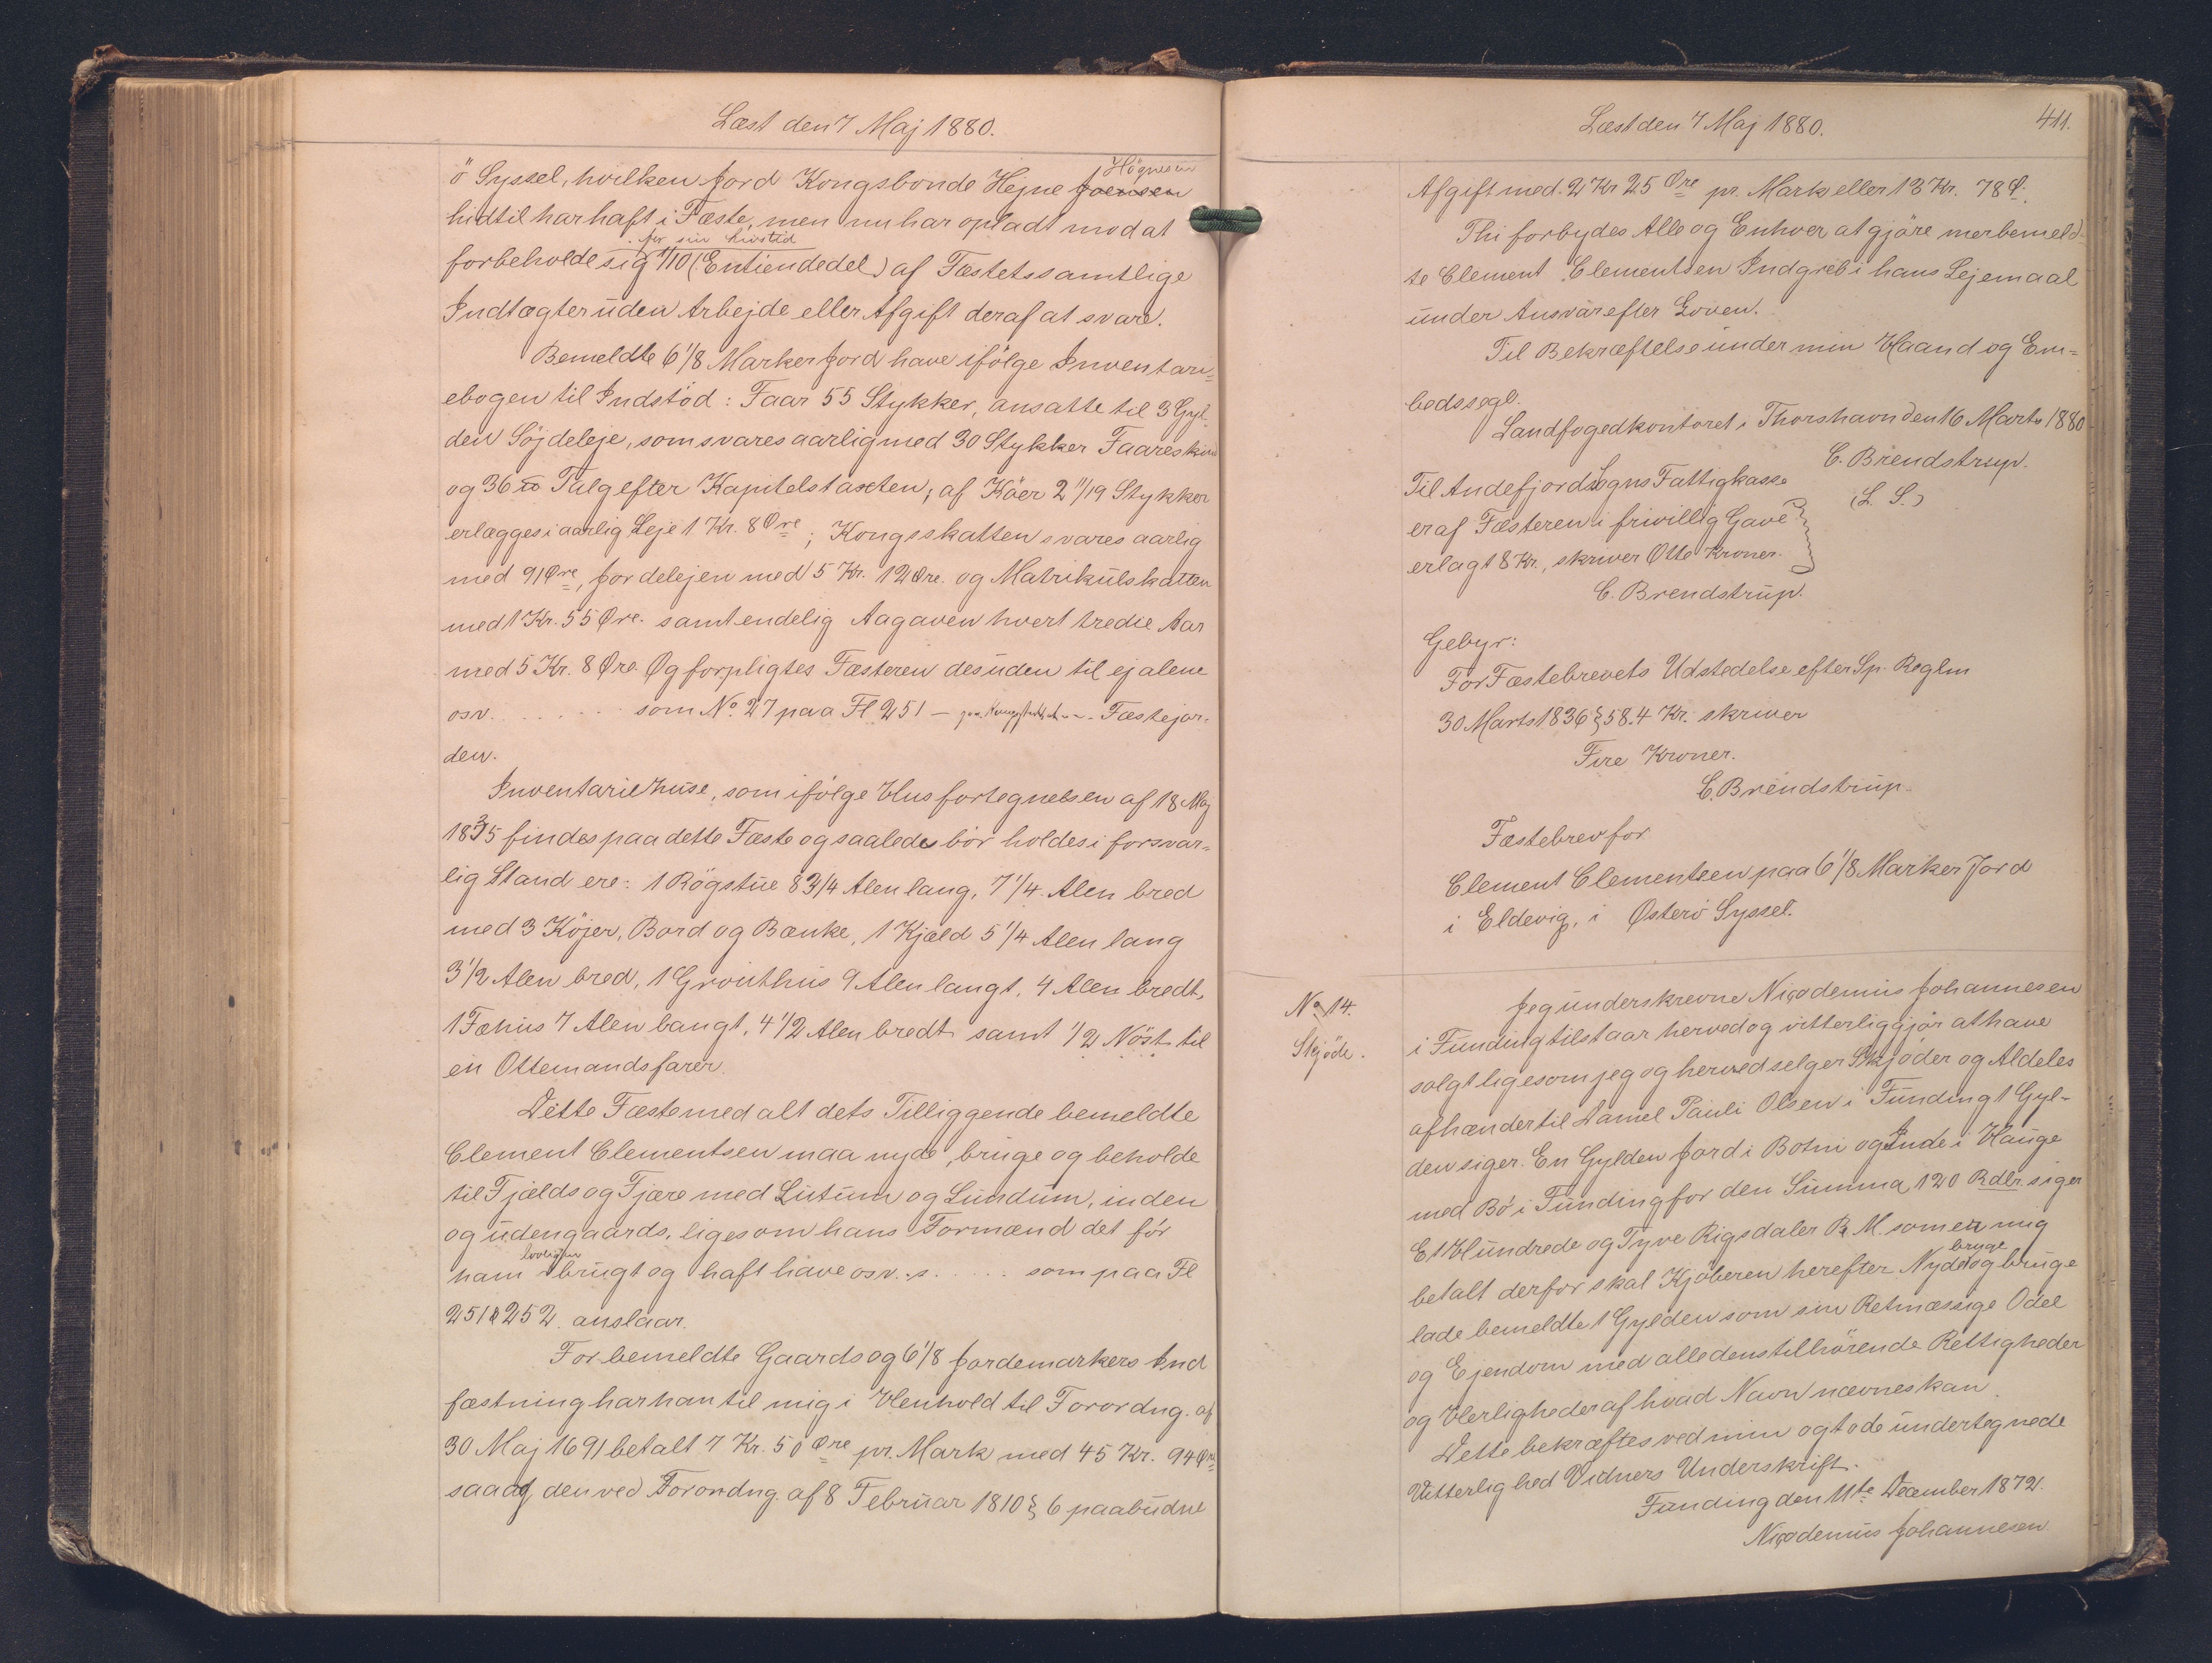 Læst den 7 Maj 1880.
ö Syssel, hvilken Jord Kongsbonde Hejne Joensen Högnesen
hidtil har haft i Fæste, men nu har opladt mod at
for sin Livstid
forbeholde sig 1/10 (Entiendedel) af Fæstets samtlige
Indtægter uden Arbejde eller Afgift deraf at svare.
Bemeldte 6 1/8 Marker Jord have ifölge Inventari-
ebogen til Indstöd: Faar 55 Stykker, ansatte til 3 Gyl-
den Söjdeleje, som svares aarlig med 30 Stykker Faareskind
og 36 ℔ Talg efter Kapitelstaxten; af Köer 2 11/19 Stykker
erlægges i aarlig Leje 1 Kr. 8 Øre; Kongsskatten svares aarlig
med 91 Øre, Jordelejen med 5 Kr. 12 Øre. og Matrikulskatten
med 1 Kr. 55 Øre. samt endelig Aagaven hvert tredie Aar
med 5 Kr. 8 Øre. Og forpligtes Fæsteren desuden til ej alene
osv. . . . . . . som No. 27 paa Fl 251 — Fæstejor-
den.
Inventariehuse, som ifölge Husfortegnelsen af 18 Maj
1835 findes paa dette Fæste og saaledes bör holdes i forsvar-
lig Stand ere: 1 Rögstue 8 3/4 Alen lang, 7 1/4 Alen bred
med 3 Köjer, Bord og Bænke, 1 Kjæld 5 1/4 Alen lang
3 1/2 Alen bred, 1 Grouthus 9 Alen langt, 4 Alen bredt,
1 Fæhus 7 Alen langt, 4 1/2 Alen bredt samt 1/2 Nöst til
en Ottemandsfarer.
Dette Fæste med alt dets Tilliggende bemeldte
Clement Clementsen maa nyde, bruge og beholde
til Fjælds og Fjære med Lutum og Lundum, inden
og udengaards, ligesom hans Formænd det för
lovligen
ham brugt og haft have osv. s. . . . . som paa Fl
251 & 252 anslaar.
For bemeldte Gaards og 6 1/8 Jordemarkers Ind
fæstning har han til mig i Henhold til Forordng. af
30 Maj 1691 betalt 7 Kr. 50 Øre pr. Mark med 45 Kr. 94 Øre
saa og den ved Forordng. af 8 Februar 1810 § 6 paabudne
Læst den 7 Maj 1880.
411.
Afgift med 2 Kr 25 Øre pr. Mark eller 13 Kr. 78 Ø.
Thi forbydes Alle og Enhver at gjöre merbemeld-
te Clement Clementsen Indgreb i hans Lejemaal
under Ansvar efter Loven.
Til Bekræftelse under min Haand og Em-
bedssegl.
Landfogedkontoret i Thorshavn den 16 Marts 1880
C. Brendstrup.
(L. S.)
Til Andefjord Sogns Fattigkasse
er af Fæsteren i frivillig Gave
erlagt 8 Kr., skriver Otte Kroner.
C. Brendstrup.
Gebyr:
For Fæstebrevets Udstedelse efter Sp. Reglm
30 Marts 1836 § 58. 4 Kr. skriver
Fire Kroner.
C. Brendstrup.
Fæstebrev for
Clement Clementsen paa 6 1/8 Marker Jord
i Eldevig, i Österö Syssel.
No. 14.
Skjöde.
Jeg underskrevne Nicodemus Johannesen
i Funding tilstaar herved og vitterliggjör at have
solgt ligesom jeg og herved selger Skjöder og Aldeles
afhænder til Daniel Pauli Olsen i Funding 1 Gyl-
den siger En Gylden Jord i Botni og Inde i Hauge
med Bö i Funding for den Summa 120 Rdlr. siger
Et Hundrede og Tyve Rigsdaler R. M. som er mig
betalt derfor skal Kjöberen herefter Nyde bryge og bruge
lade bemeldte 1 Gylden som sin Retmæssige Odel
og Ejendom med alle dens tilhörende Rettigheder
og Herligheder af hvad Navn nævnes kan.
Dette bekræftes ved min og tode undertegnede
Vitterlighed Vidners Underskrift.
Funding den 11te December 1872.
Nicodemus Johannesen